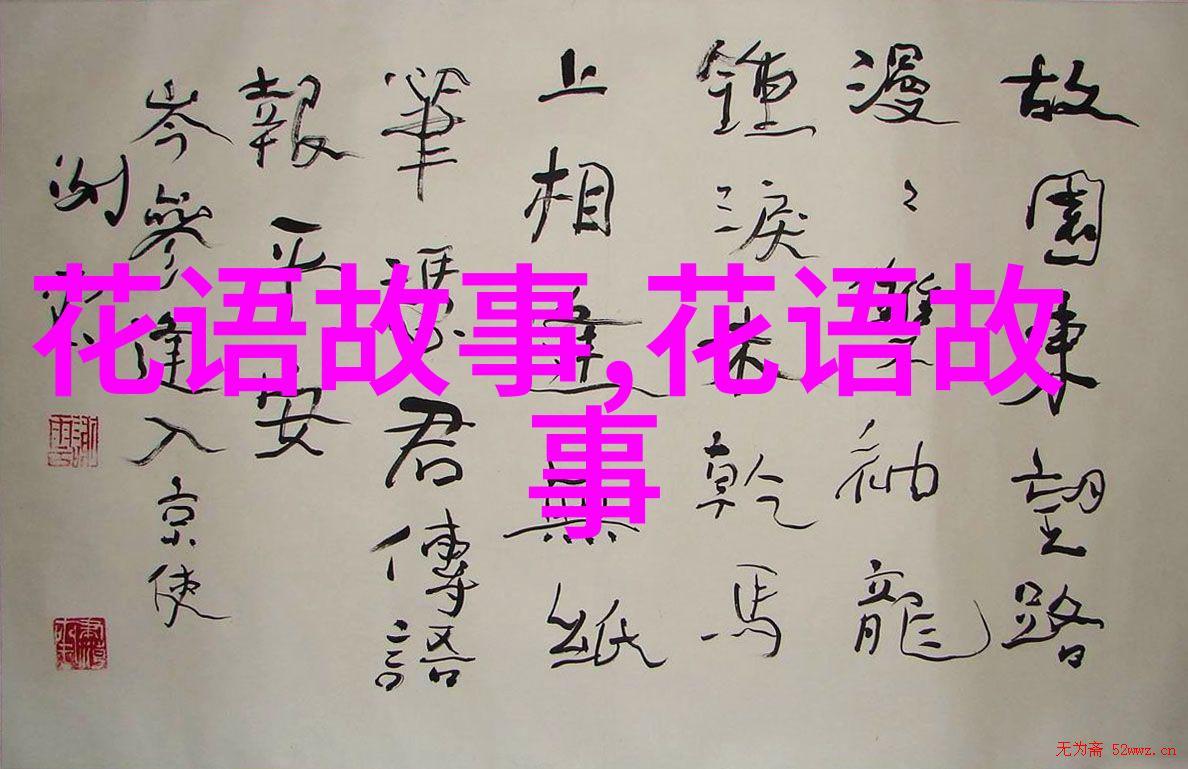 故園東望路
漫〻雙袖龍
鍾淚未乾馬
上相逢無紙
筆憑君傳語
報平安
岑參逢入京使
花语故事,花语故
事
无为斋 52wwz.cn